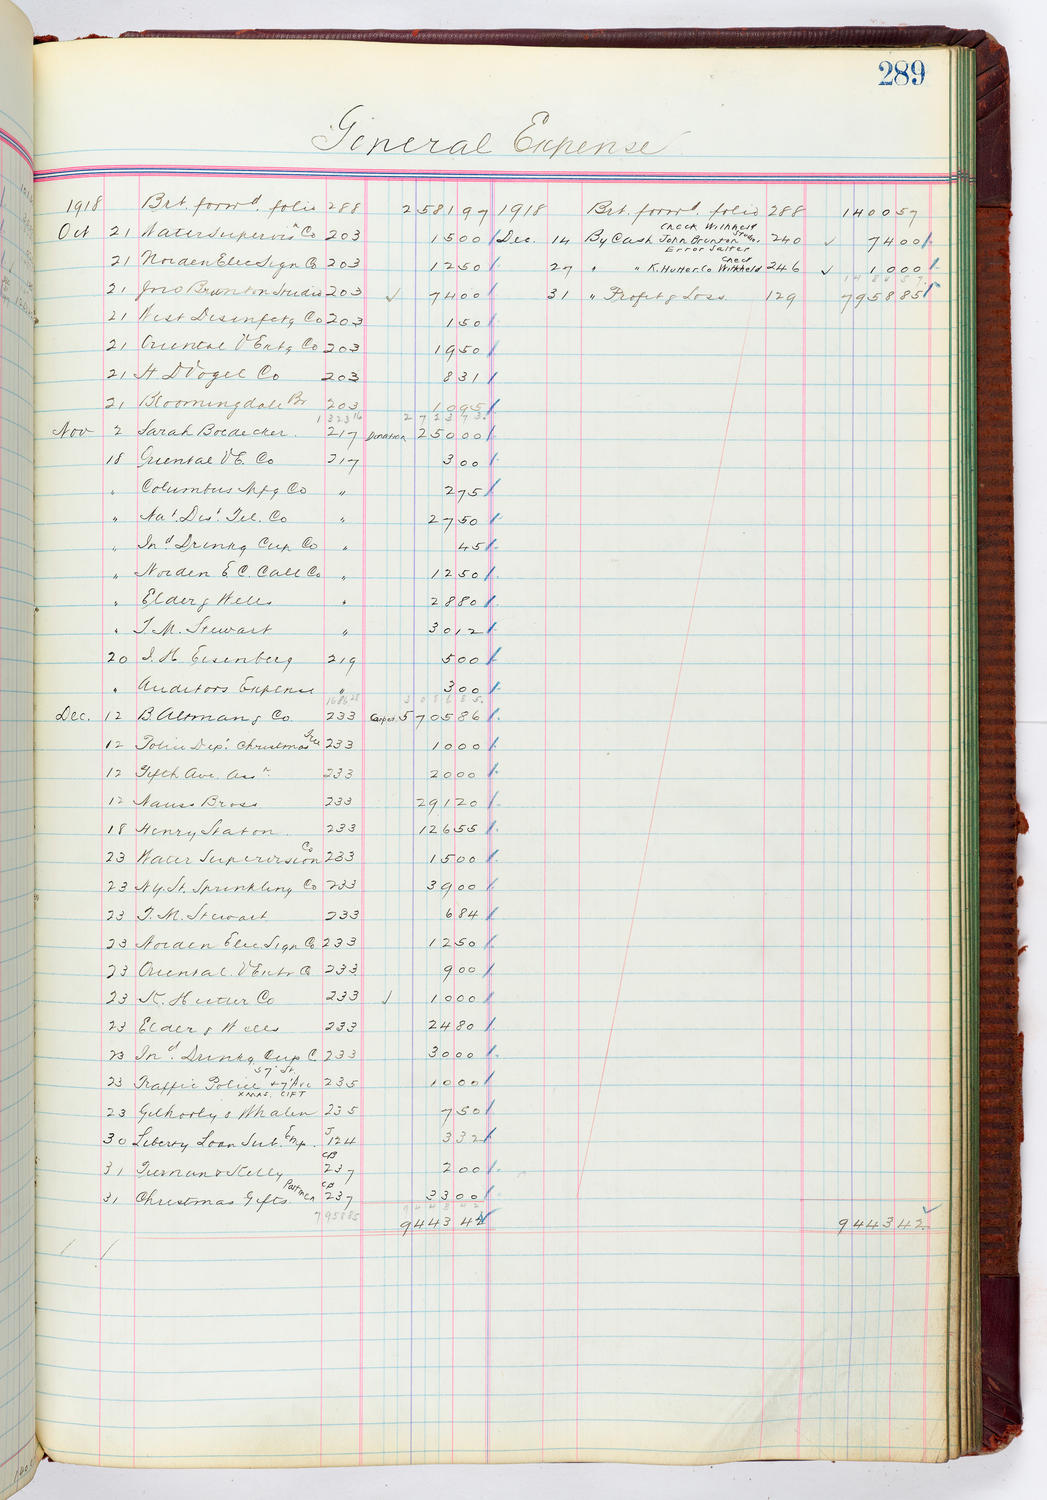 289
General Expense
1918 Brt. forw'd. folio 288 2 581 97
Oct 21 Water Supervis'n Co 203 15 00
21 Norden Elec Sign Co 203 12 50
21 Jno Brunton Studio 203 √ 74 00
21 West Disinfctg Co 203 1 50
21 Oriental V Extg Co 203 19 50
21 H D Vogel Co 203 8 31
21 Bloomingdale Br 203 10 95
1323 16 2 723 73
Nov 2 Sarah Boedecker. 217 Donation 250 00
18 Oriental V E. Co 217 3 00
" Columbus Mfg Co " 2 75
" Na'. Dis'. Tel. Co " 27 50
" Ind Drinkg Cup Co " 45
" Norden E C. Call Co " 12 50
" Elder & Wells " 28 80
" T. M. Stewart " 30 12
20 I. H. Eisenberg 219 5 00
" Auditors Expense " 3 00
1686 28 3 086 85
Dec. 12 B. Altman & Co 233 Carpet 5 705 86
12 Police Dep'. Christmas Tree 233 10 00
12 Fifth Ave. Ass'n. 233 20 00
12 Nauss Bross 233 291 20
18 Henry Staton. 233 126 55
23 Water Supervision Co 233 15 00
23 N.Y. St. Sprinkling Co 233 39 00
23 T. M. Stewart 233 6 84
23 Norden Elec Sign Co 233 12 50
23 Oriental. V Extr Co 233 9 00
23 K. Hutter Co 233 √ 10 00
23 Elder & Wells 233 24 80
23 Ind. Drinkg Cup C 233 30 00
23 Traffic Police 57' St. + 7' Ave XMAS. GIFT 235 10 00
23 Gilhooly & Whalen 235 7 50
30 Liberty Loan Sub. Exp. J 124 3 32
31 Tiernan & Kelly CB 237 2 00
31 Christmas Gifts CB 237 33 00
7958 85 9 443 42
9 443 42
1918 Brt. forw'd. folio 288 1 400 57
Dec. 14 By Cash John Brunton Studio. Check Withheld Error Salter 240 √ 74 00
27 " " K. Hutter Co Check Withheld 246 √ 10 00
1484 57
31 " Profit & Loss 129 7 958 85
9 443 42